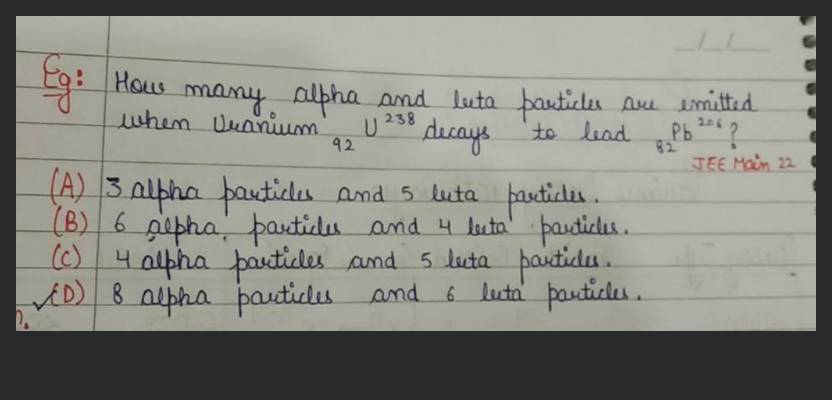 Eg: How many alpha and beta particles are emitted
when Uranium ₉₂U²³⁸ decays to lead ₈₂Pb²⁰⁶?
JEE Main 22
(A) 3 alpha particles and 5 beta particles.
(B) 6 alpha particles and 4 beta particles.
(C) 4 alpha particles and 5 beta particles.
✓(D) 8 alpha particles and 6 beta particles.